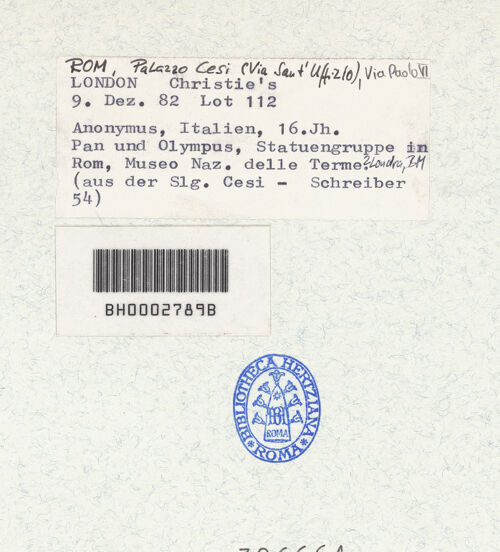 ROM, Palazzo Cesi (Via Sant' Uffizio), Via Paolo VI
LONDON Christie's
9. Dez. 82 Lot 112
Anonymus, Italien, 16.Jh.
Pan und Olympus, Statuengruppe in
Rom, Museo Naz. delle Terme. ?Londra, BM
(aus der Slg. Cesi - Schreiber
54)
BH0002789B
BIBLIOTHECA HERTZIANA
ROMA
* ROMA *